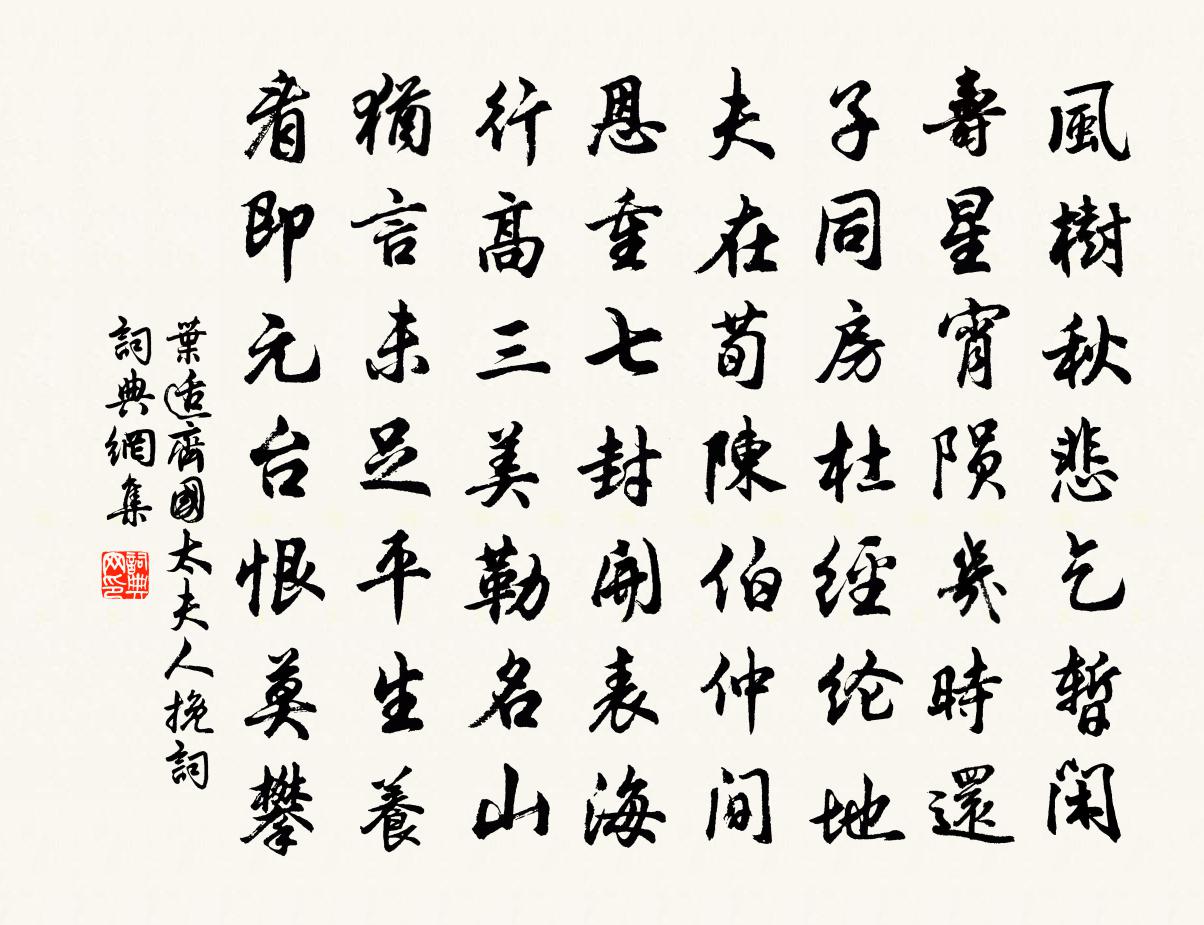 風樹秋悲乞暫閑
壽星宵陨幾時還
子同房杜經纶地
夫在荀陳伯仲间
恩重七封開表海
行高三美勒名山
猶言未足平生養
看即元台恨莫攀
葉适齊國太夫人挽詞
詞典網集
詞典网印